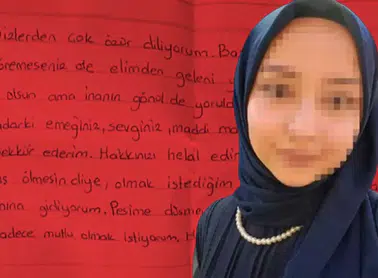 izlerden çok özür diliyorum. Ba
öremeseniz de elimden geleni y
olsun ama inanın gönül de yoruld
adarki emeğiniz, sevginiz, maddi ma
ekkür ederim. Hakkınızı helal edir
ölmesin diye, olmak istediğim
nına gidiyorum. Peşime düşme
adece mutlu olmak istiyorum.